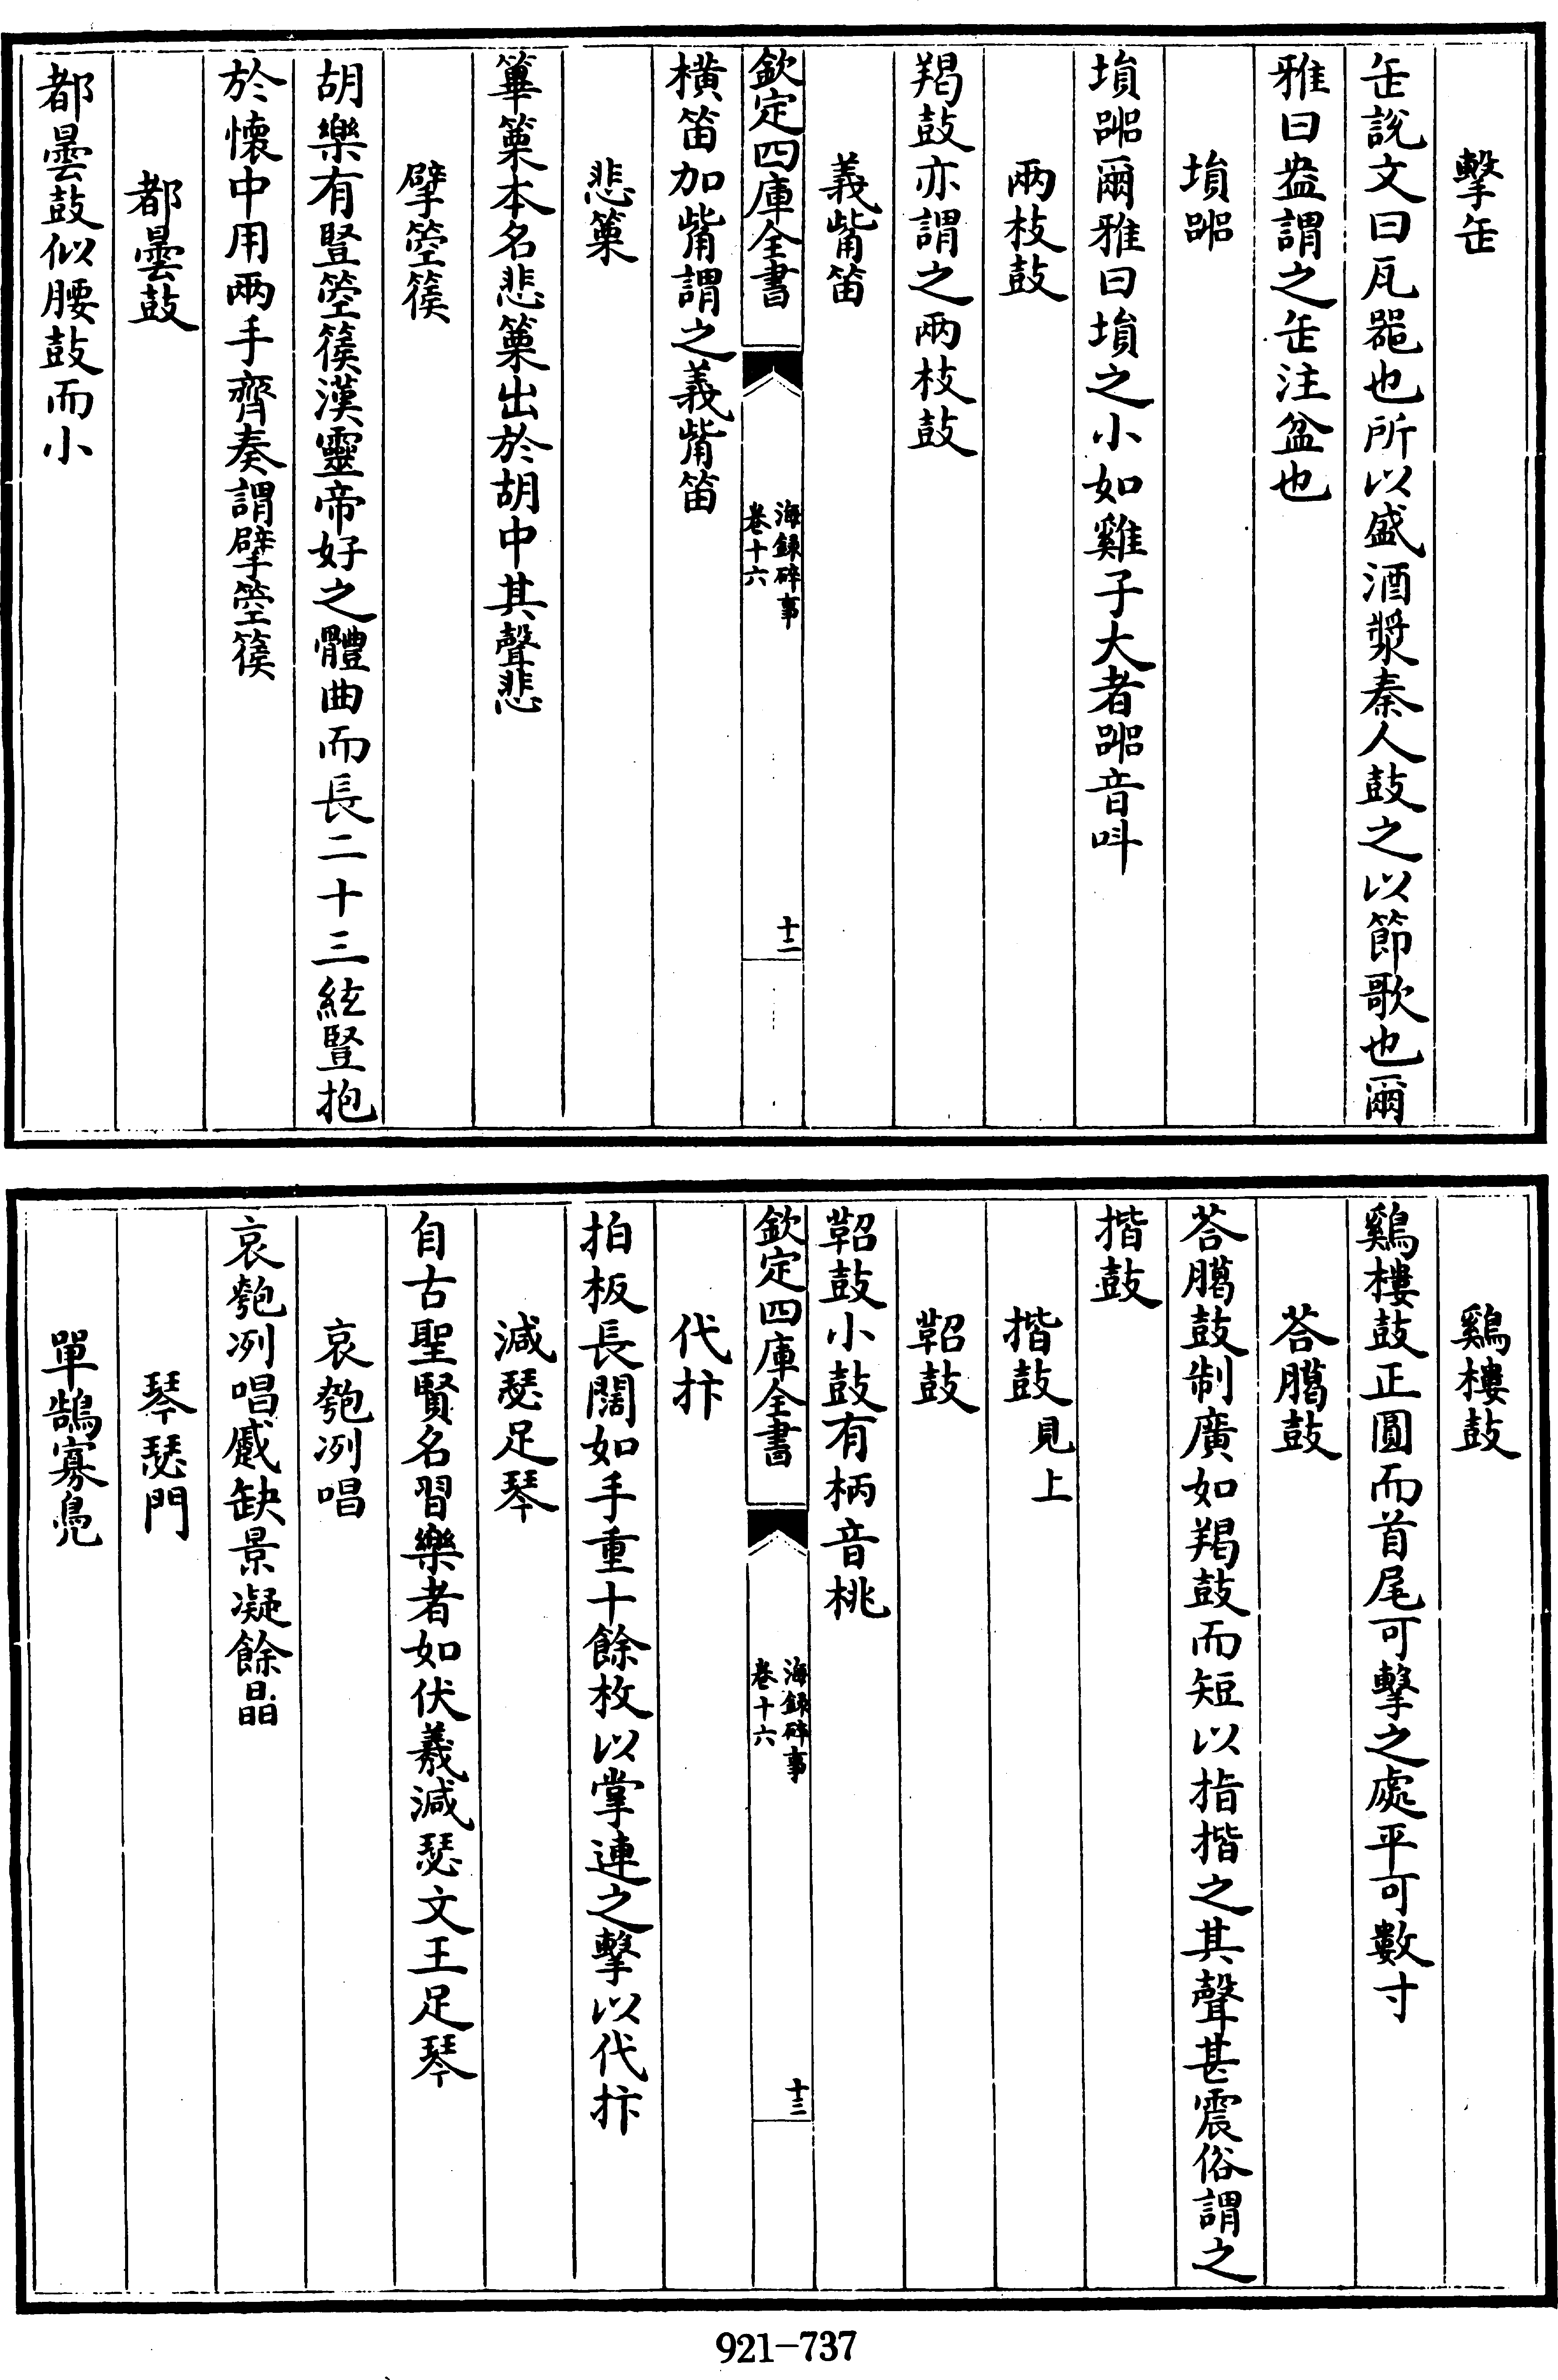 擊缶
缶說文曰瓦器也所以盛酒漿秦人鼓之以節歌也爾
雅曰盎謂之缶注盆也
塤㗛
塤㗛爾雅曰塤之小如雞子大者㗛音叫
兩枝鼓
羯鼓亦謂之兩枝鼓
義觜笛
欽定四庫全書
海録碎事
卷十六
十二
橫笛加觜謂之義觜笛
悲篥
篳篥本名悲篥出於胡中其聲悲
擘箜篌
胡樂有豎箜篌漢靈帝好之體曲而長二十三絃豎抱
於懷中用兩手齊奏謂擘箜篌
都曇鼓
都曇鼓似腰鼓而小
鷄樓鼓
鷄樓鼓正圓而首尾可擊之處平可數寸
荅臈鼓
荅臈鼓制廣如羯鼓而短以指揩之其聲甚震俗謂之
揩鼓
揩鼓見上
鞀鼓
鞀鼓小鼓有柄音桃
欽定四庫全書
海録碎事
卷十六
十三
代抃
拍板長闊如手重十餘枚以掌連之擊以代抃
減瑟足琴
自古聖賢名習樂者如伏羲減瑟文王足琴
哀匏冽唱
哀匏冽唱慼缺景凝餘晶
琴瑟門
單鵠寡鳧
921-737